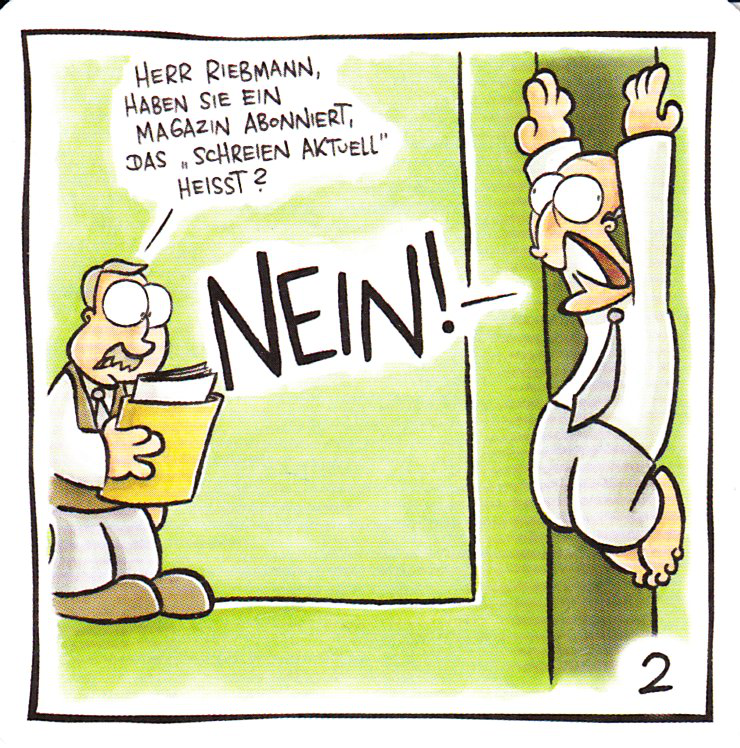 HERR RIEBMANN,
HABEN SIE EIN
MAGAZIN ABONNIERT,
DAS „SCHREIEN AKTUELL"
HEISST?
NEIN!
2